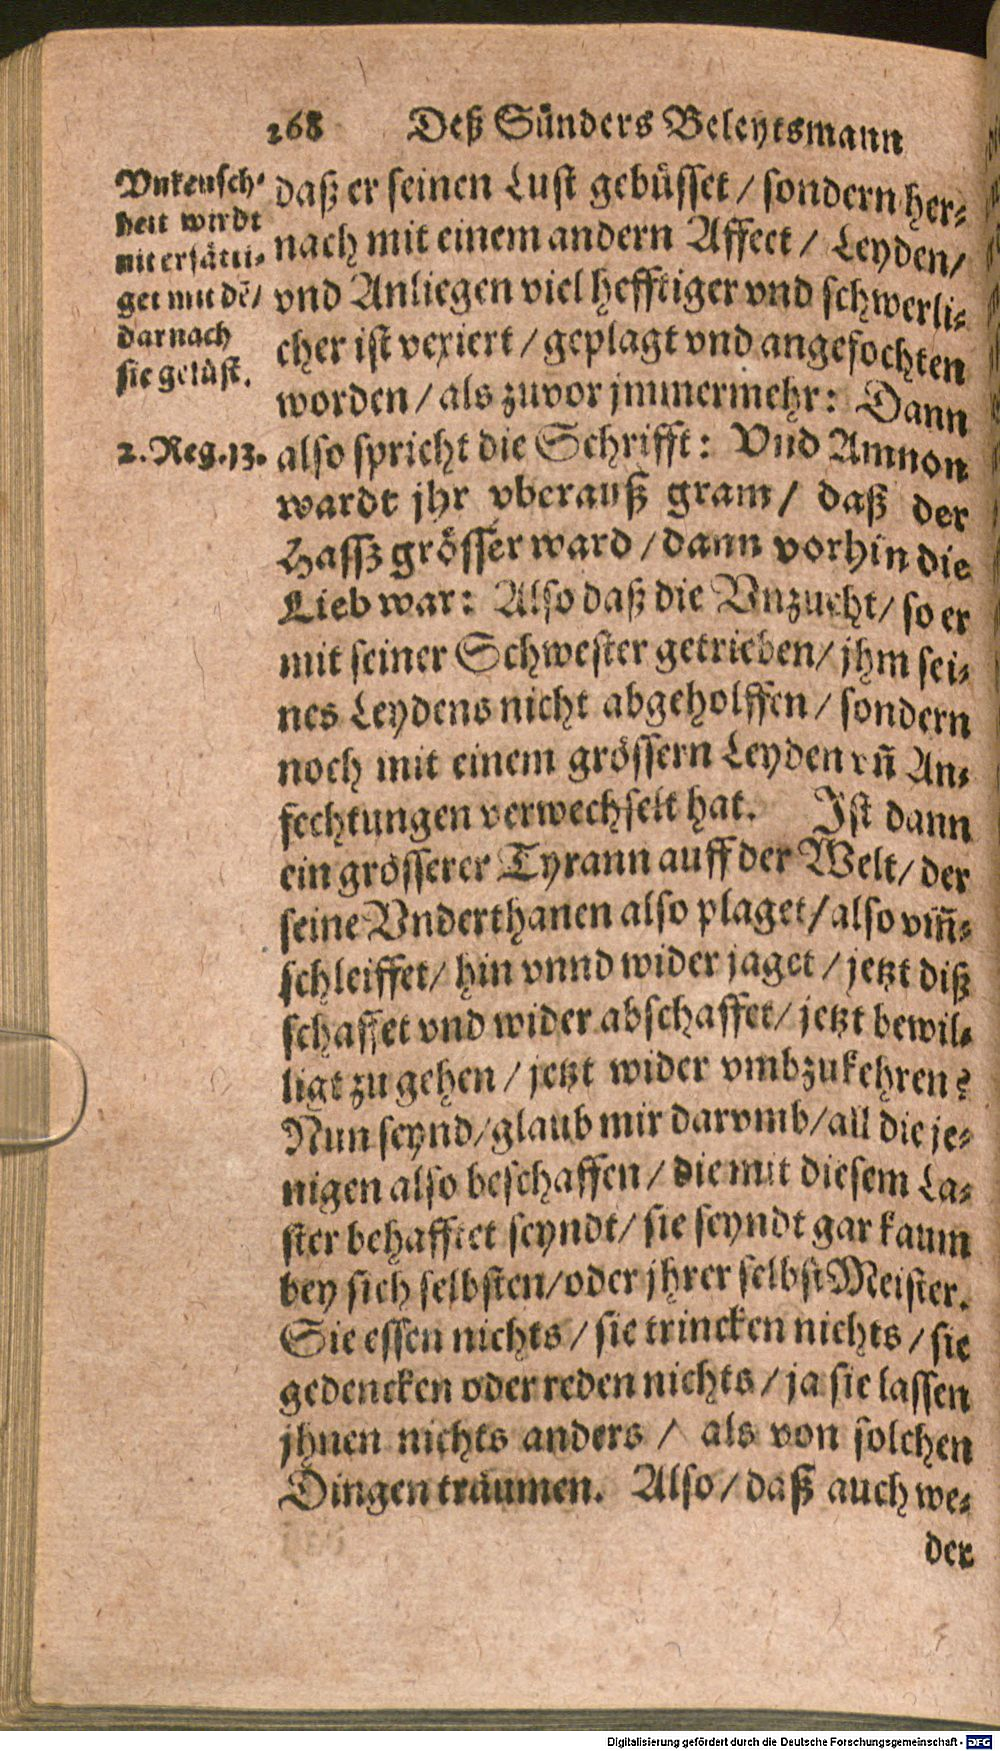 268 Deß Sünders Beleytsmann
Vnkeusch-
heit wirdt
nit ersätti-
get mit dē/
darnach
sie gelüst.
2. Reg. 13.
daß er seinen Lust gebüsset / sondern her-
nach mit einem andern Affect / Leyden/
vnd Anliegen viel hefftiger vnd schwerli-
cher ist vexiert / geplagt vnd angefochten
worden / als zuvor jmmermehr: Dann
also spricht die Schrifft: Vnd Amnon
wardt jhr vberauß gram / daß der
Hassz grösser ward / dann vorhin die
Lieb war: Also daß die Vnzucht / so er
mit seiner Schwester getrieben / jhm sei-
nes Leydens nicht abgeholffen / sondern
noch mit einem grössern Leyden vñ An-
fechtungen verwechselt hat. Ist dann
ein grösserer Tyrann auff der Welt / der
seine Vnderthanen also plaget / also vm̃-
schleiffet / hin vnnd wider jaget / jetzt diß
schaffet vnd wider abschaffet / jetzt bewil-
ligt zu gehen / jetzt wider vmbzukehren?
Nun seynd / glaub mir darvmb / all die je-
nigen also beschaffen / die mit diesem La-
ster behafftet seyndt / sie seyndt gar kaum
bey sich selbsten / oder jhrer selbst Meister.
Sie essen nichts / sie trincken nichts / sie
gedencken oder reden nichts / ja sie lassen
jhnen nichts anders / als von solchen
Dingen träumen. Also / daß auch we-
der
Digitalisierung gefördert durch die Deutsche Forschungsgemeinschaft - DFG